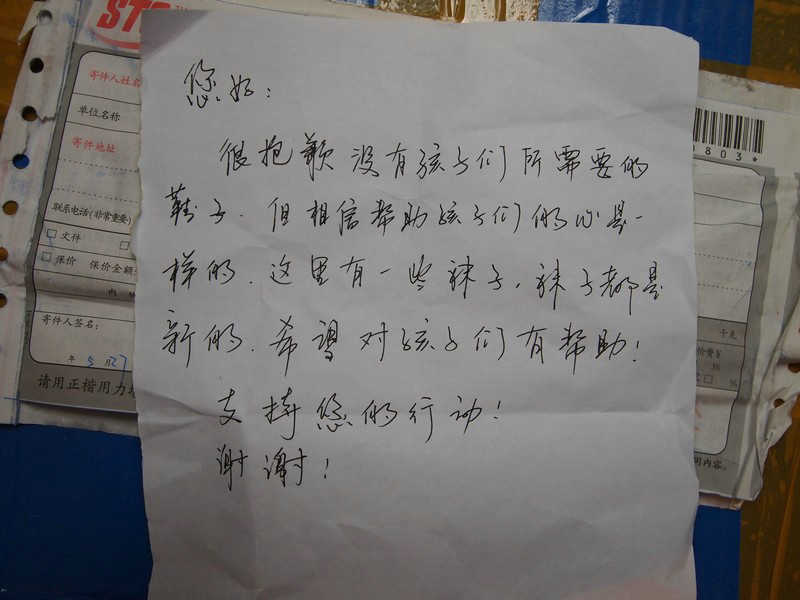 您好：
很抱歉没有孩子们所需要的
鞋子．但相信帮助孩子们的心是一
样的．这里有一些袜子，袜子都是
新的．希望对孩子们有帮助！
支持您的行动！
谢谢！
STO
寄件人姓名
单位名称
寄件地址
联系电话(非常重要)
□文件
□保价 保价金额
寄件人签名：
年 5月27
请用正楷用力填
1803*
千克
%
内容.